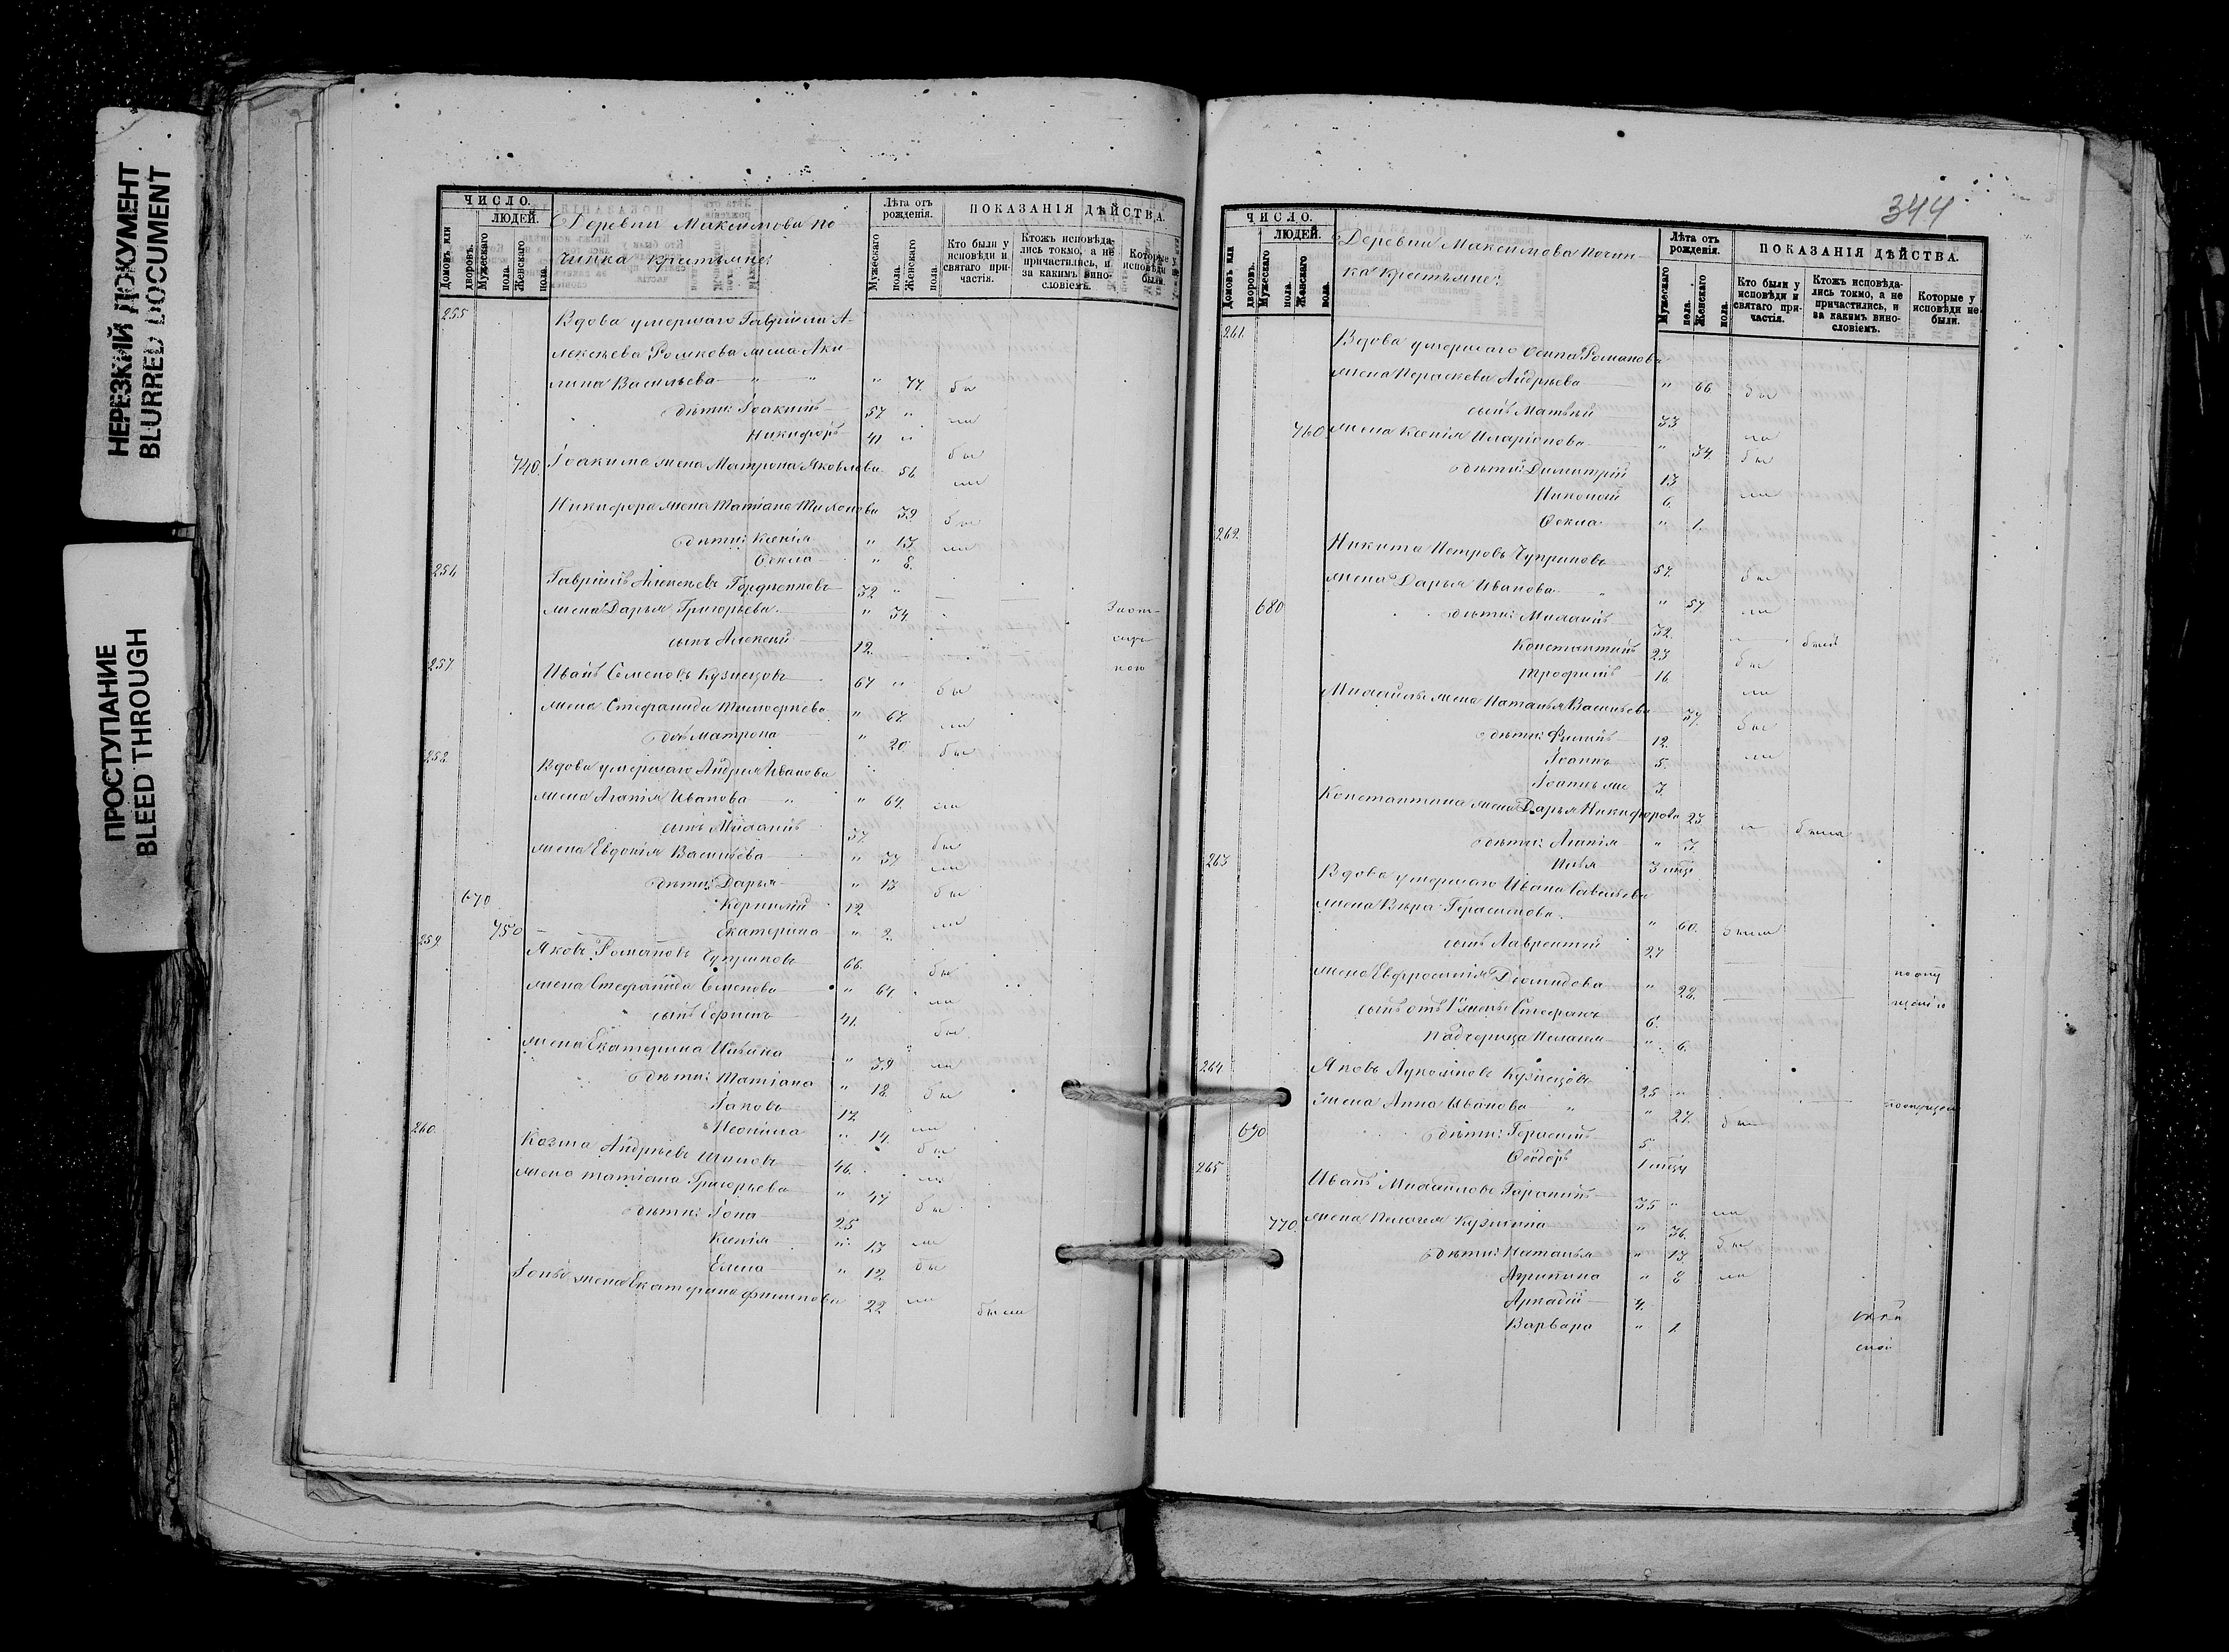 НЕРЕЗКИЙ ДОКУМЕНТ
BLURRED DOCUMENT
ПРОСТУПАНИЕ
BLEED THROUGH
ЧИСЛО.
ЛЮДЕЙ.
Домовъ или дворовъ.
Мужескаго пола.
Женскаго пола.
Деревни Максимова По
чинка крестьяне:
Лѣта отъ рожденія.
Мужескаго пола.
Женскаго пола.
ПОКАЗАНІЯ ДѢЙСТВА.
Кто были у исповѣди и святаго причастія.
Ктожъ исповѣдались токмо, а не причастились, и за какимъ винословіемъ.
Которые у исповѣди не были.
255 Вдова умершаго Гавріила А-
лексѣева жена Аки
лина Васильева " " " 77. бы
дѣти: Іоакимъ 57 " ли
Никифоръ 41 " бы
740. Іоакима жена Матрона Яковлева 56 ли
Никифора жена Татіана Тихонова 39 бы
дѣти: Ксенія " 13 ли
Ѳекла " 8.
256 Гавріилъ Алексѣевъ 32 "
жена Дарья Григорьева " 34
сынъ Алексѣй 12.
257 Иванъ Семеновъ Кузнецовъ 67 " бы
жена Стефанида Тимофѣева " 67. ли
дочь Матрона " 20 бы
258 Вдова умершаго Андрея Иванова
жена Агапія Иванова " " 64. ли
сынъ Михаилъ 37. бы
жена Евдокія Васильева " 37 ли
дѣти: Дарья " 13 бы
670 Корнилій 12
750 Екатерина " 2. ли
259 Яковъ Романовъ Чуприновъ 66. бы
жена Стефанида Семенова " 64. ли
сынъ Ефимъ 41. бы
жена Екатерина Ильина " 39 ли
дѣти: Татіана " 18 бы
Іаковъ 17
Неонила " 14. ли
260. Козма Андрѣевъ Шиповъ 46. бы
жена Татіана Григорьева " 47 ли
дѣти: Іона 25 бы
Ксенія " 13 ли
Елена " 12. бы
Іоны жена Екатерина Филипова 22 ли были
344
ЧИСЛО.
ЛЮДЕЙ.
Домовъ или дворовъ.
Мужескаго пола.
Женскаго пола.
Деревни Максимова Почин-
ка крестьяне:
Лѣта отъ рожденія.
Мужескаго пола.
Женскаго пола.
ПОКАЗАНІЯ ДѢЙСТВА.
Кто были у исповѣди и святаго причастія.
Ктожъ исповѣдались токмо, а не причастились, и за какимъ винословіемъ.
Которые у исповѣди не были.
261. Вдова умершаго Осипа Романова
жена Параскева Андрѣева " 66. бы
сынъ Матвѣй 33 ли
760. жена Ксенія Иларіонова " 34. бы
дѣти: Димитрій 13 ли
Николай 6.
Ѳекла " 1.
262. Никита Петровъ Чуприновъ 57. бы
жена Дарья Иванова " " 57 ли
680 дѣти: Михаилъ 32.
Константинъ 23 бы
Трофимъ 16 ли
Михаила жена Наталья Васильева 37. бы
дѣти: Филипъ 12. ли
Іоаннъ 5.
Іоаннъ же 3.
Константина жена Дарья Никифорова 23.
дѣти: Агапія " 3.
Илья 3 мѣс
263 Вдова умершаго Ивана Савельева
жена Вѣра Герасимова " 60.
сынъ Лаврентій 27
жена Евфросинія Діомидова " 28.
сынъ отъ 1й жены Стефанъ 6.
Падчерица Пелагея " 6.
264 Яковъ Кузнецовъ 25 "
жена Анна Иванова " " 27. бы
690 дѣти: Герасимъ 5
Ѳеодоръ 1 мѣс
265 Иванъ Михайловъ Гаранинъ 35 " ли
770. жена Пелагея Кузмина " 36. бы
дѣти: Наталья " 13
Агрипина " 8 ли
Аркадій 4.
Варвара " 1